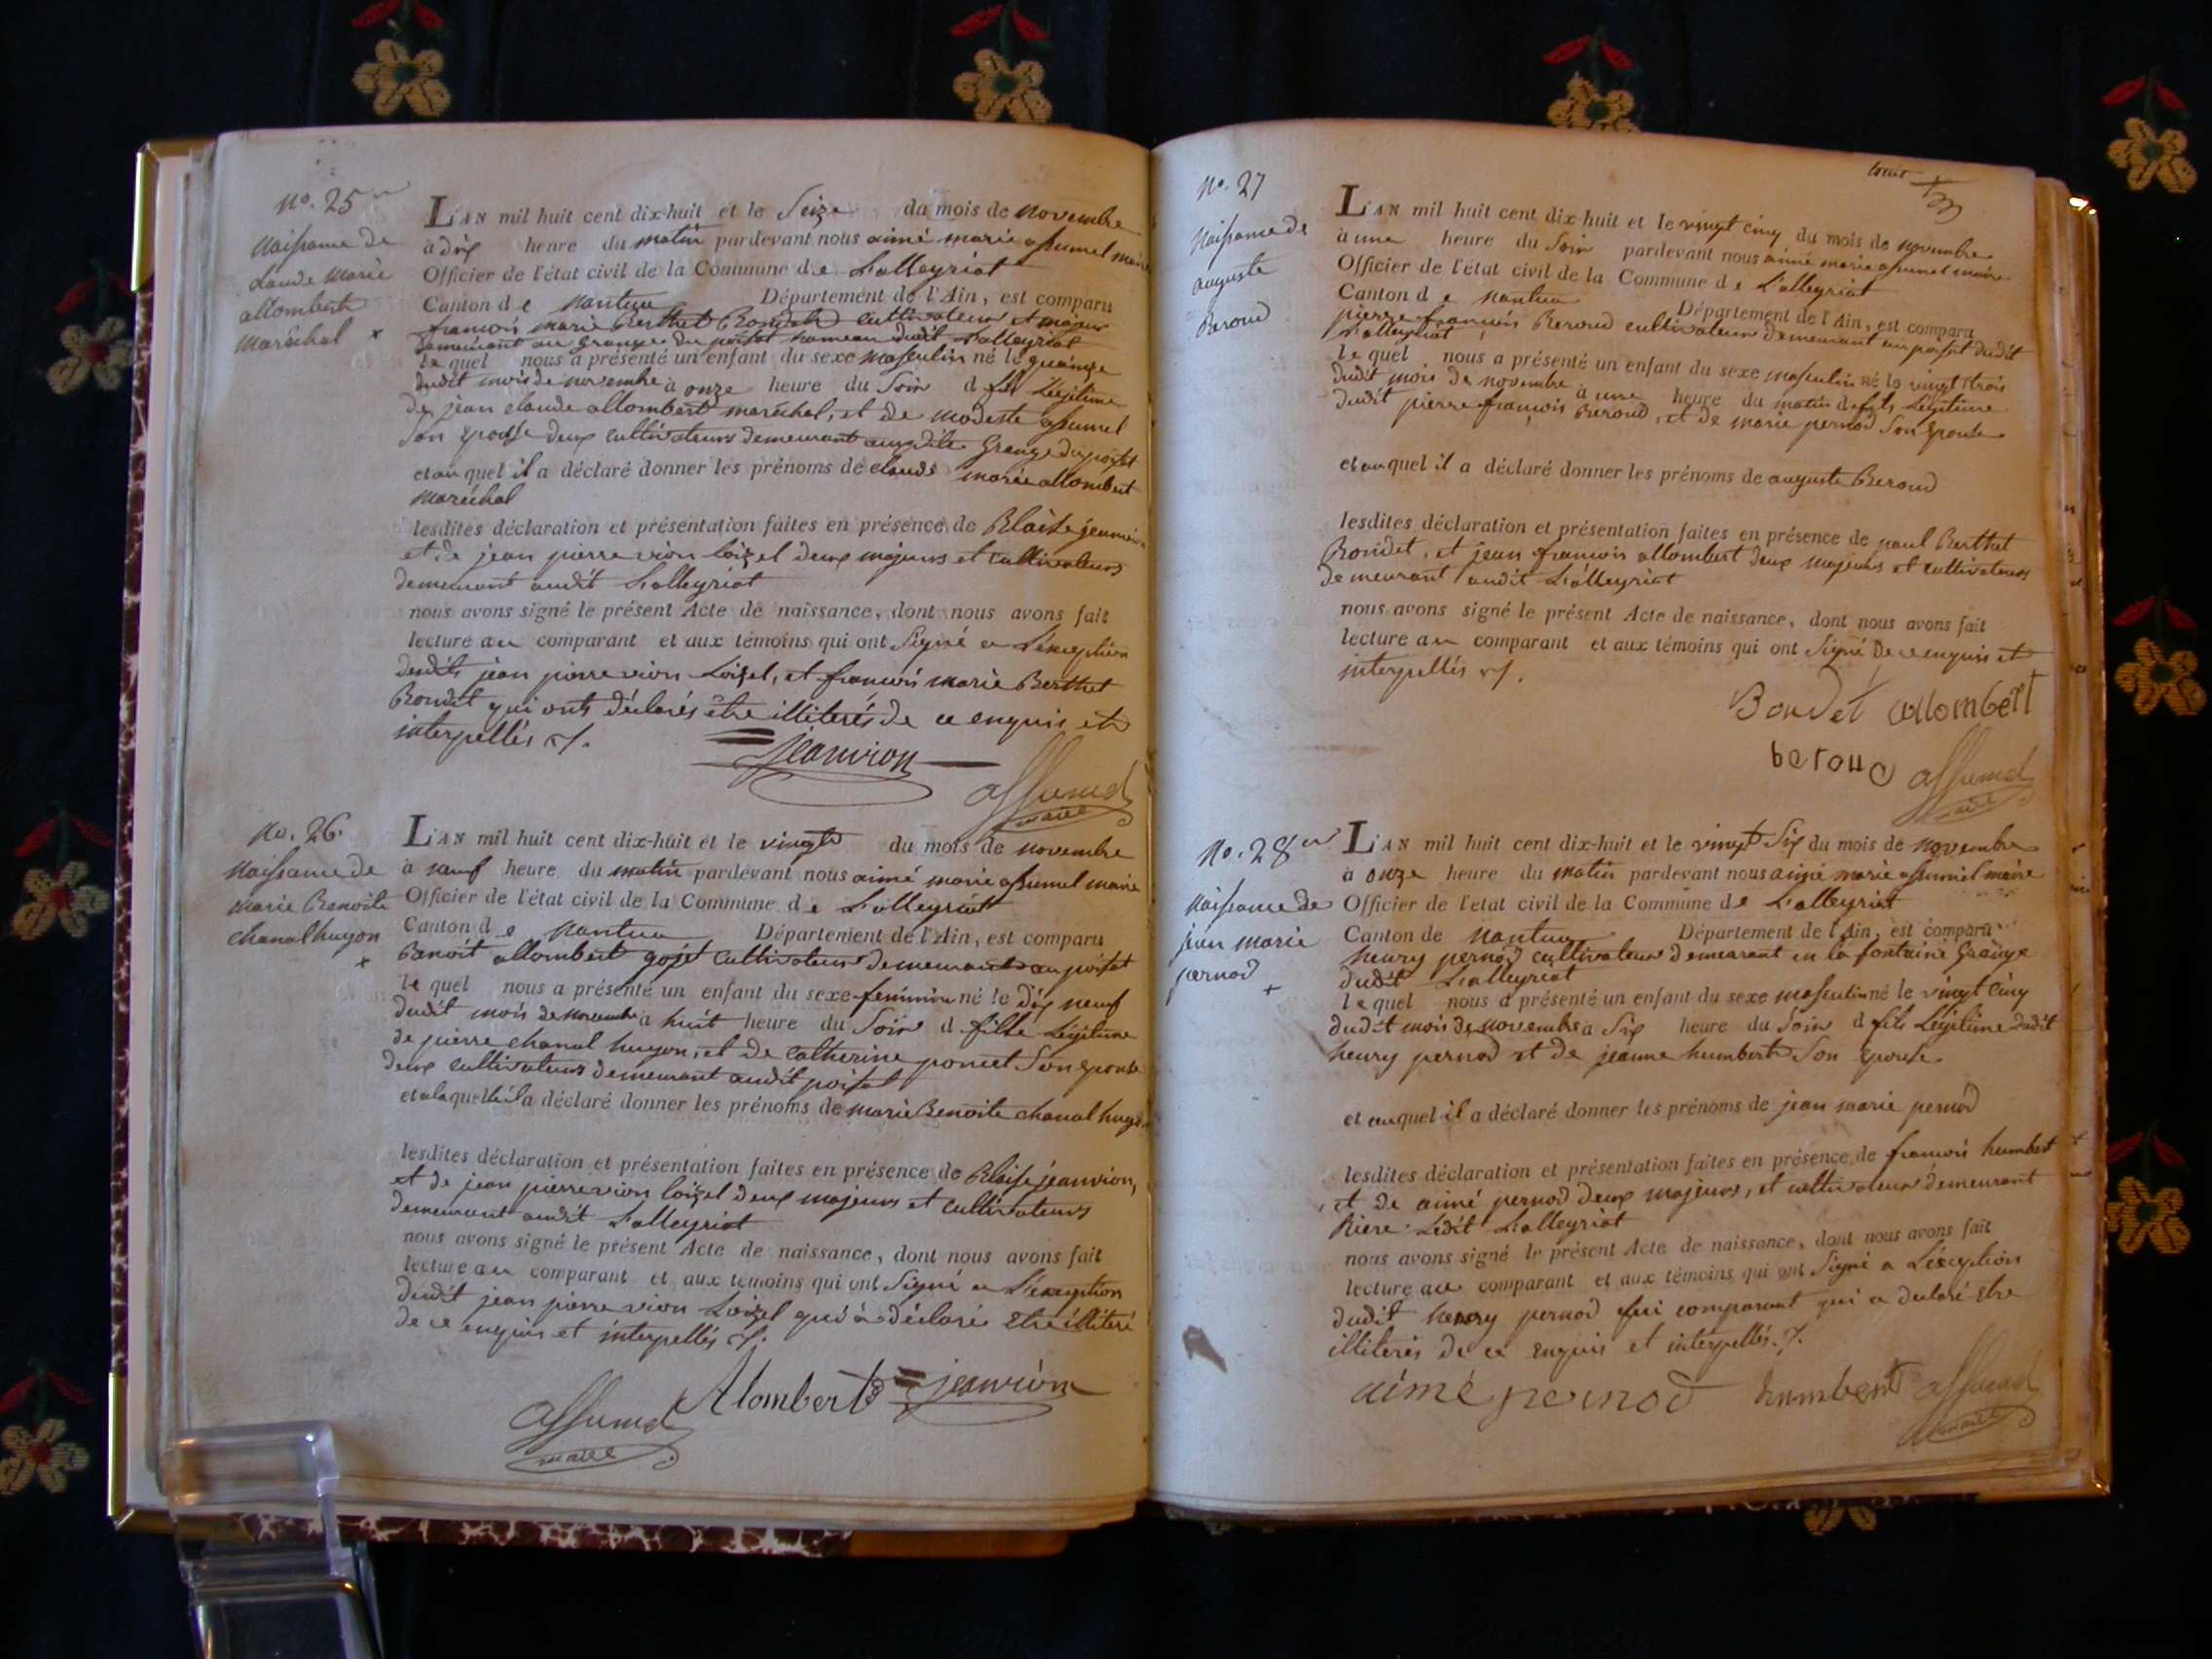 No. 25
Naissance de
Claude Marie
allombert
Maréchal
L'AN mil huit cent dix-huit et le Seize du mois de Novembre
à dix heure du matin pardevant nous aimé marie assumel maire
Officier de l'état civil de la Commune de Lalleyriat
Canton de Nantua Département de l'Ain, est comparu
françois marie Berthet Bondet cultivateur et majeur
demeurant au granges du poizat hameau dudit Lalleyriat
lequel nous a présenté un enfant du sexe masculin né le quinze
dudit mois de novembre à onze heure du Soir d fils Légitime
de jean claude allombert maréchal, et de modeste assumel
Son epouse deux cultivateurs demeurant auxdite Grange du poizat
et au quel il a déclaré donner les prénoms de claude marie allombert
maréchal
lesdites déclaration et présentation faites en présence de Blaise jeanvion
et de jean pierre vion loizel deux majeurs et cultivateurs
demeurant audit Lalleyriat
nous avons signé le présent Acte de naissance, dont nous avons fait
lecture au comparant et aux témoins qui ont Signé a L'exception
desdits jean pierre vion Loizel, et françois marie Berthet
Bondet qui ont déclarés etre illiterés de ce enquis et
interpellés
jeanvion
assumel
maire
No. 26.
Naissance de
Marie Benoite
chanal hugon
L'AN mil huit cent dix-huit et le vingt du mois de novembre
à neuf heure du matin pardevant nous aimé marie assumel maire
Officier de l'état civil de la Commune de Lalleyriat
Canton de Nantua Département de l'Ain, est comparu
Benoit allombert gojet cultivateur demeurant au poizat
lequel nous a présenté un enfant du sexe feminin né le dix neuf
dudit mois de novembre à huit heure du Soir d fille Légitime
de pierre chanal hugon, et de Catherine poncet Son epouse
deux cultivateurs demeurant audit poizat
et a laquelle il a déclaré donner les prénoms de marie Benoite chanal hugon
lesdites déclaration et présentation faites en présence de Blaise jeanvion,
et de jean pierre vion loizel deux majeurs et cultivateurs
demeurant audit Lalleyriat
nous avons signé le présent Acte de naissance, dont nous avons fait
lecture au comparant et aux témoins qui ont Signé a L'exception
dudit jean pierre vion Loizel qui à déclaré Etre illiteré
de ce enquis et interpellés
Alombert jeanvion
assumel
maire
No. 27
Naissance de
auguste
Beroud
L'AN mil huit cent dix-huit et le vingt cinq du mois de novembre
à une heure du Soir pardevant nous aimé marie assumel maire
Officier de l'état civil de la Commune de Lalleyriat
Canton de Nantua Département de l'Ain, est comparu
pierre françois Beroud cultivateur demeurant au poizat dudit
Lalleyriat
lequel nous a présenté un enfant du sexe masculin né le vingt trois
dudit mois de novembre à une heure du matin d fils Légitime
dudit pierre françois Beroud, et de marie pernod Son epouse
et au quel il a déclaré donner les prénoms de auguste Beroud
lesdites déclaration et présentation faites en présence de paul Berthet
Bondet, et jean françois allombert deux majeurs et cultivateurs
demeurant audit Lalleyriat
nous avons signé le présent Acte de naissance, dont nous avons fait
lecture au comparant et aux témoins qui ont Signé De ce enquis et
interpellés
Bondet allombert
beroud assumel
maire
No. 28
Naissance de
jean marie
pernod
L'AN mil huit cent dix-huit et le vingt Six du mois de Novembre
à onze heure du matin pardevant nous aimé marie assumel maire
Officier de l'état civil de la Commune de Lalleyriat
Canton de Nantua Département de l'Ain, est comparu
henry pernod cultivateur demeurant en la fontaine Grange
dudit Lalleyriat
lequel nous a présenté un enfant du sexe masculin né le vingt cinq
dudit mois de novembre à Six heure du Soir d fils Légitime dudit
henry pernod et de jeanne humbert Son epouse
et au quel il a déclaré donner les prénoms de jean marie pernod
lesdites déclaration et présentation faites en présence de françois humbert
et de aimé pernod deux majeurs, et cultivateurs demeurant
Riere Ledit Lalleyriat
nous avons signé le présent Acte de naissance, dont nous avons fait
lecture au comparant et aux témoins qui ont Signé a L'exception
dudit henry pernod comparant qui a declaré etre
illiterés de ce enquis et interpellés
aimé pernod humbert assumel
maire